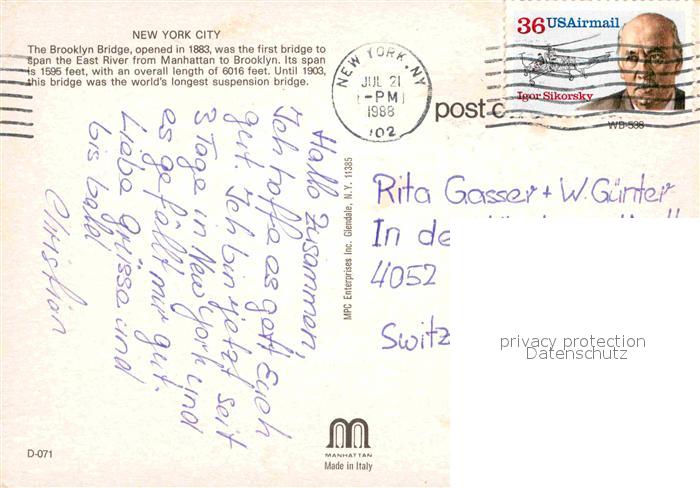 NEW YORK CITY
The Brooklyn Bridge, opened in 1883, was the first bridge to
span the East River from Manhattan to Brooklyn. Its span
is 1595 feet, with an overall length of 6016 feet. Until 1903,
this bridge was the world's longest suspension bridge.
NEW YORK, NY
JUL 21
PM
1988
102
36 USAirmail
Igor Sikorsky
post c
WB-538
Hallo Zusammen,
Ich hoffe es geht Euch
gut. Ich bin jetzt seit
3 Tage in New York und
es gefällt mir gut.
Liebe Grüsse und
bis bald
Christian
MPC Enterprises Inc. Glendale, N.Y. 11385
Rita Gasser + W. Günter
In de
4052
Switz
privacy protection
Datenschutz
D-071
MANHATTAN
Made in Italy